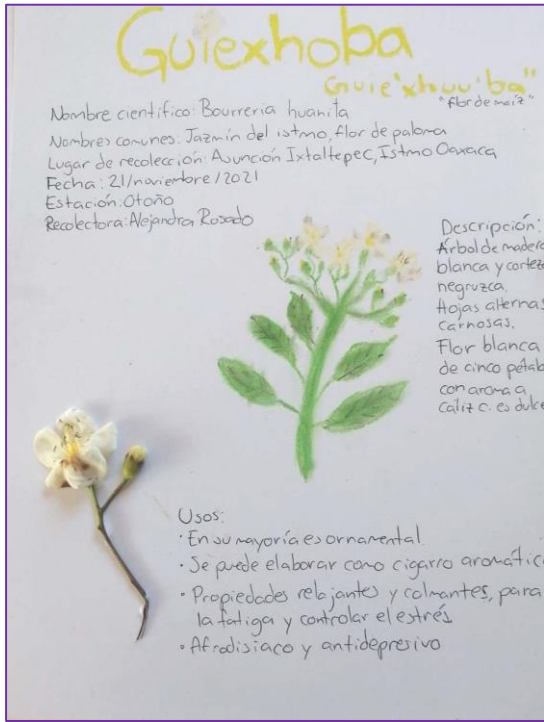 Guiexhoba
Guie'xhuu'ba"
"flor de maíz"
Nombre científico: Bourreria huanita
Nombres comunes: Jazmín del istmo, flor de paloma
Lugar de recolección: Asunción Ixtaltepec, Istmo Oaxaca
Fecha: 21/noviembre/2021
Estación: Otoño
Recolectora: Alejandra Rosado
Descripción:
Árbol de madera
blanca y corteza
negruzca.
Hojas alternas
carnosas.
Flor blanca
de cinco
con aroma a
es dulce
Usos:
· En su mayoría es ornamental
· Se puede elaborar como cigarro aromático
· Propiedades relajantes y calmantes, para
la fatiga y controlar el estrés
· Afrodisiaco y antidepresivo